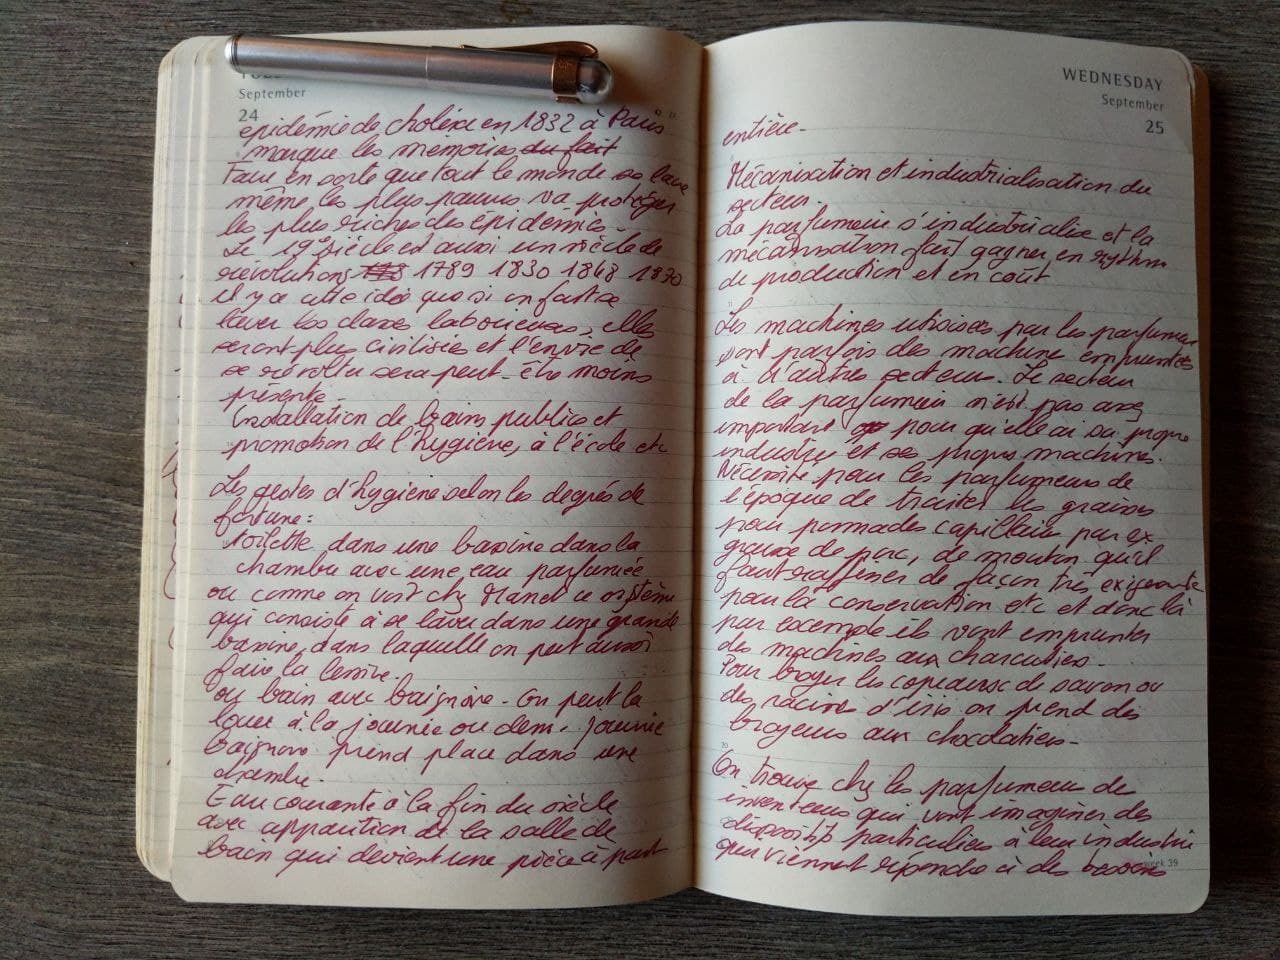 September
24
epidémie de choléra en 1832 à Paris
marque les memoires du fait
Faire en sorte que tout le monde se lave
même les plus pauvres va protéger
les plus riches des épidémies
Le 19e siècle est aussi un siècle de
révolutions 1789 1830 1848 1870
il y a cette idée que si on fait se
laver les classes laborieuses, elles
seront plus civilisées et l'envie de
se révolter sera peut-être moins
présente.
Installation de bains publics et
promotion de l'hygiène, à l'école etc
Les gestes d'hygiène selon les degrés de
fortune:
toilette dans une bassine dans la
chambre avec une eau parfumée
ou comme on voit chez Manet ce système
qui consiste à se laver dans une grande
bassine dans laquelle on peut aussi
faire la lessive.
ou bain avec baignoire. On peut la
louer à la journée ou demi-journée
baignoire prend place dans une
chambre.
Eau courante à la fin du siècle
avec apparition de la salle de
bain qui devient une pièce à part
WEDNESDAY
September
25
entière.
Mécanisation et industrialisation du
secteur.
La parfumerie s'industrialise et la
mécanisation fait gagner en rythme
de production et en coût
Les machines utilisées par les parfumeurs
sont parfois des machines empruntées
à d'autres secteurs. Le secteur
de la parfumerie n'est pas assez
important pour qu'elle ai sa propre
industrie et ses propres machines.
Nécessité pour les parfumeurs de
l'époque de traiter les graisses
pour pommades capillaires par ex
graisse de porc, de mouton qu'il
faut raffiner de façon très exigeante
pour la conservation etc et donc là
par exemple ils vont emprunter
des machines aux charcutiers.
Pour broyer les copeaux de savon ou
des racines d'iris on prend des
broyeurs aux chocolatiers.
On trouve chez les parfumeurs des
inventeurs qui vont imaginer des
dispositifs particuliers à leur industrie
qui viennent répondre à des besoins
week 39